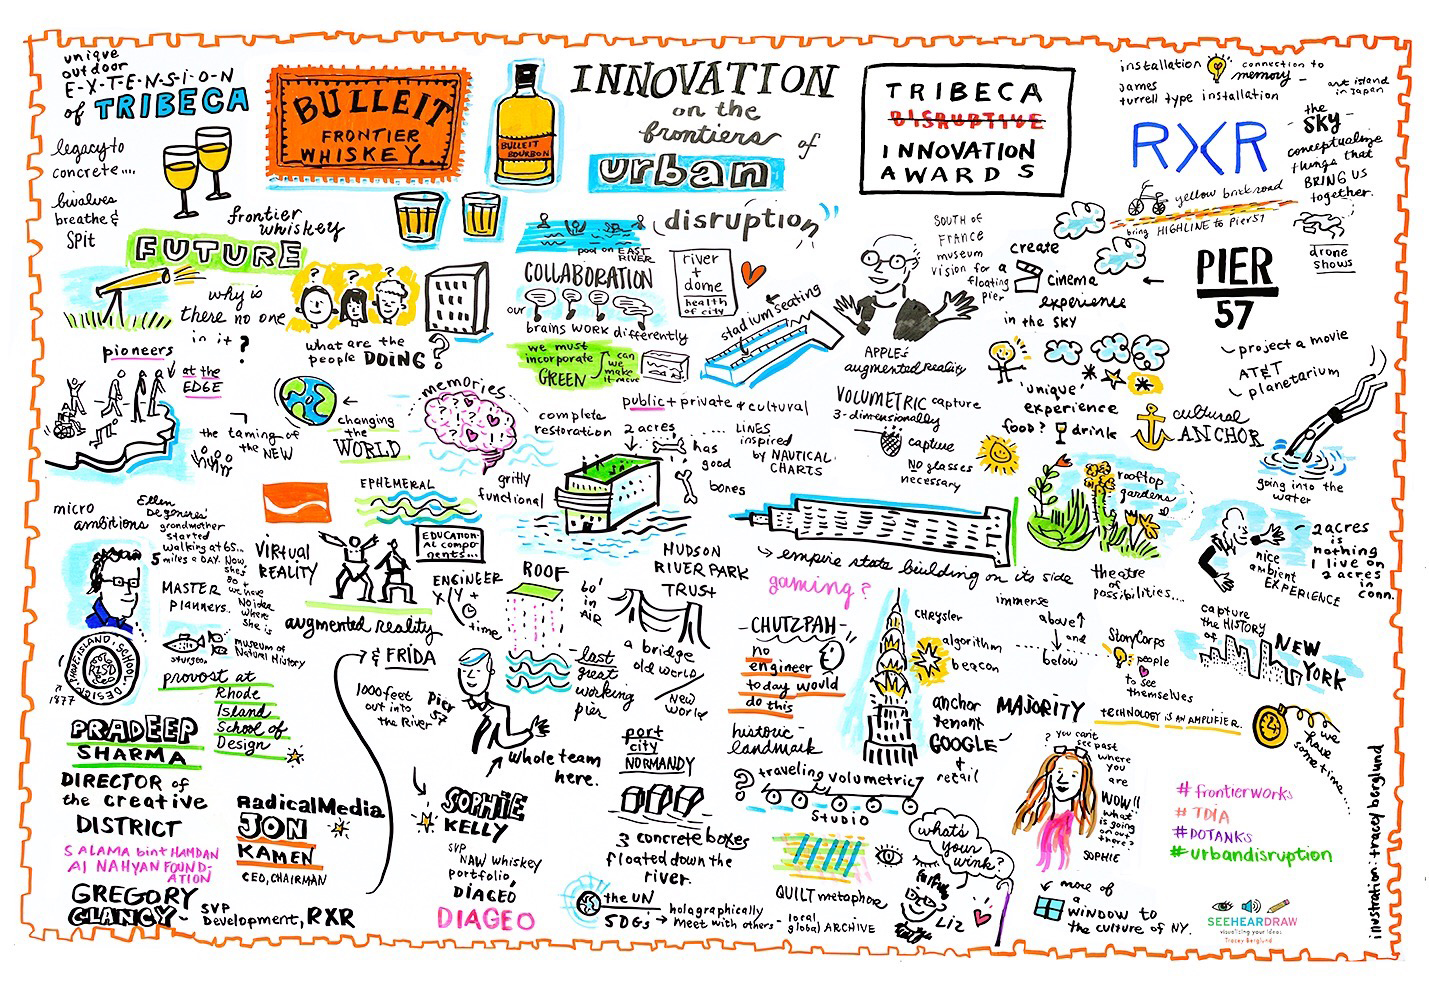 unique
outdoor
E-X-T-E-N-S-I-O-N
of TRIBECA
legacy to
concrete....
bivalves
breathe &
SPit
BULLEIT
FRONTIER
WHISKEY
frontier
whiskey
BULLEIT
BOURBON
INNOVATION
on the
frontiers of
urban
disruption"
TRIBECA
DISRUPTIVE
INNOVATION
AWARDS
installation
connection to
memory-
James
turrell type installation
art island
in Japan
RXR
the
SKY-
conceptualize
things that
BRING US
together.
yellow brick road
bring HIGHLINE to Pier 57
drone
shows
PIER
57
FUTURE
why is
there no one
in it ?
? ? ?
what are the
people DOING?
pool on EAST
RIVER
COLLABORATION
our
brains WORK differently
river
+
dome
health
of city
we must
incorporate
GREEN
can
we
make
it move
stadium seating
SOUTH OF
FRANCE
museum
vision for a
floating
pier
create
cinema
experience
in the SKY
APPLE &
augmented reality
VOLUMETRIC capture
3-dimensionally
capture
NO glasses
necessary
'unique'
experience
food? drink
cultural
ANCHOR
project a movie
AT&T
planetarium
going into the
water
pioneers
at the
EDGE
the taming of
the NEW
changing
the
WORLD
memories
complete
restoration
gritly
functional
public + private & cultural
2 acres .... LINES
inspired
by NAUTICAL
CHARTS
has
good
bones
rooftop
gardens
2 acres
is
nothing
I live on
2 acres
in
conn.
nice
ambient
EXPERIENCE
micro
ambitions
Ellen
Degeneres'
grandmother
started
walking at 65...
5 miles a DAY. Now,
she's
80 &
we have
NO idea
where
she is
MASTER
planners.
VIRTUAL
REALITY
EPHEMERAL
EDUCATION-
AL compo-
nents...
ENGINEER
X/Y +
time
augmented reality
& FRIDA
1000 feet
out into
the River
Pier
57
ROOF
60'
in
AIR
last
great
working
pier
HUDSON
RIVER PARK
TRUST
a bridge
old world
/
New
World
empire state building on its side
gaming?
CHUTZPAH-
no
engineer
today would
do this
historic
landmark
chrysler
algorithm
beacon
anchor
tenant
GOOGLE
+
retail
immerse
above
and
below
theatre of
possibilities...
StoryCorps
people
to see
themselves
capture
the HISTORY
of
NEW
YORK
MAJORITY
TECHNOLOGY IS AN AMPLIFIER.
we
have
some time....
RHODE ISLAND SCHOOL DESIGN
RISD
1877
sturgeon
museum of
Natural History
provost at
Rhode
Island
School of
Design
PRADEEP
SHARMA
DIRECTOR of
the creative
DISTRICT
SALAMA bint HAMDAN
Al NAHYAN FOUND-
ATION
GREGORY
CLANCY-
SVP
Development, RXR
RadicalMedia
JON
KAMEN
CEO, CHAIRMAN
whole team
here.
SOPHIE
KELLY
SVP
NAW whiskey
portfolio,
DIAGEO
DIAGEO
port
city
NORMANDY
3 concrete boxes
floated down the
river.
the UN
SDGs
holagraphically
meet with others
traveling volumetric
STUDIO
QUILT metaphore
local
global ARCHIVE
what's
your
wink?
LIZ
? You can't
see past
where
you
are
WOW!!
what
is going
on out
there?
SOPHIE
more of
a
WINDOW to
the culture of NY.
#frontierworks
# TDIA
#DOTANKS
#urbandisruption
SEEHEARDRAW
visualizing your ideas
Tracey Berglund
illustration: tracey berglund